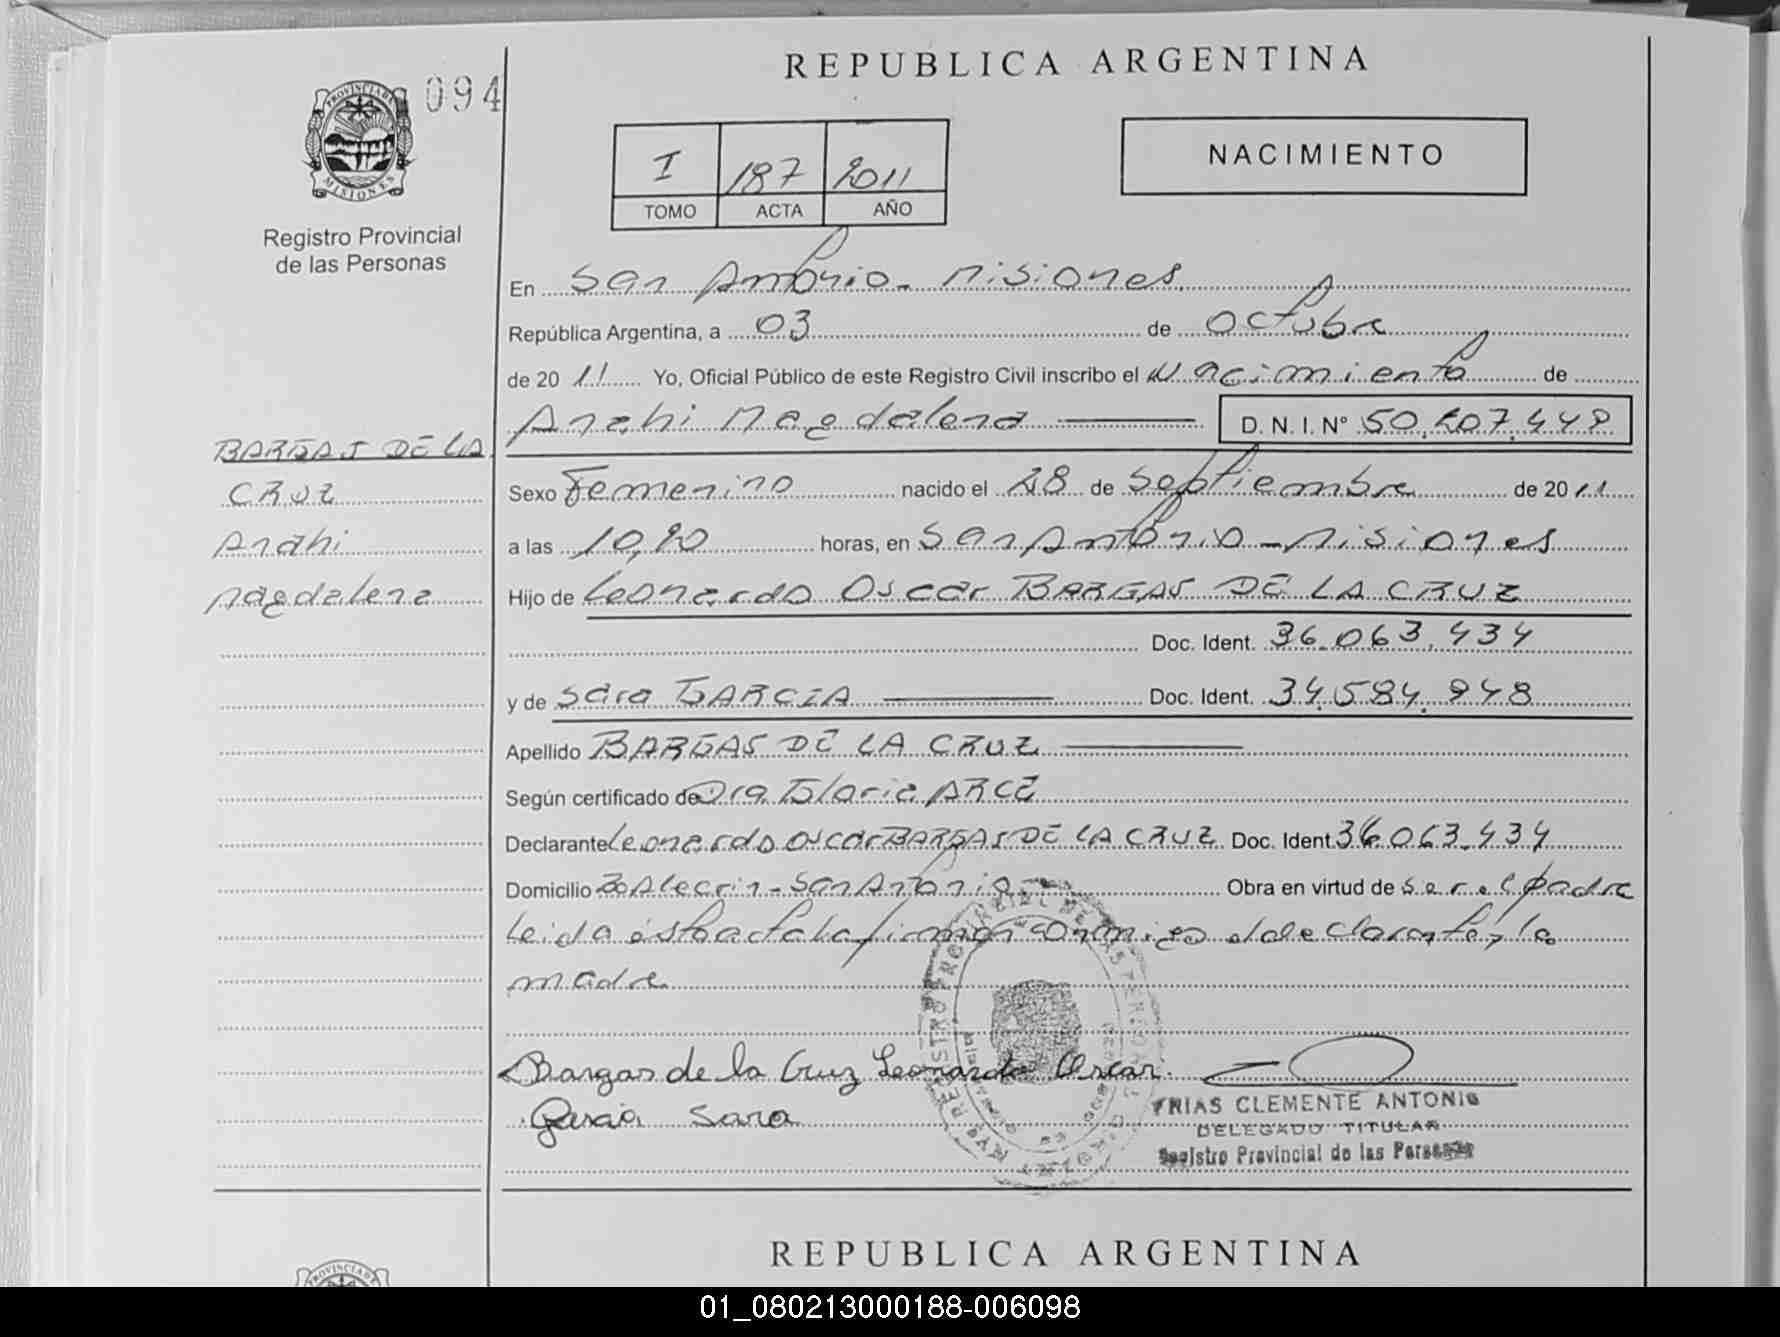 094
REPUBLICA ARGENTINA
PROVINCIA DE MISIONES
I 187 2011
TOMO ACTA AÑO
NACIMIENTO
Registro Provincial
de las Personas
En San Antonio - Misiones
República Argentina, a 03 de octubre
de 20 11 Yo, Oficial Público de este Registro Civil inscribo el Nacimiento de
Anahi Magdalena D. N. I. Nº 50.207.448
BARGAS DE LA
CRUZ
Anahi
Magdalena
Sexo Femenino nacido el 28 de Septiembre de 20 11
a las 10,20 horas, en San Antonio - Misiones
Hijo de Leonardo Oscar BARGAS DE LA CRUZ
Doc. Ident. 36.063.434
y de Sara GARCIA Doc. Ident. 34.584.948
Apellido BARGAS DE LA CRUZ
Según certificado de Dra. Gloria ARCE
Declarante Leonardo Oscar BARGAS DE LA CRUZ Doc. Ident. 36.063.434
Domicilio Bo Alecrin - San Antonio Obra en virtud de ser el padre
leida esta acta la firman conmigo el declarante y la
madre
Bargas de la Cruz Leonardo Oscar.
Garcia Sara
FRIAS CLEMENTE ANTONIO
DELEGADO TITULAR
Registro Provincial de las Personas
REPUBLICA ARGENTINA
PROVINCIA DE
01_080213000188-006098